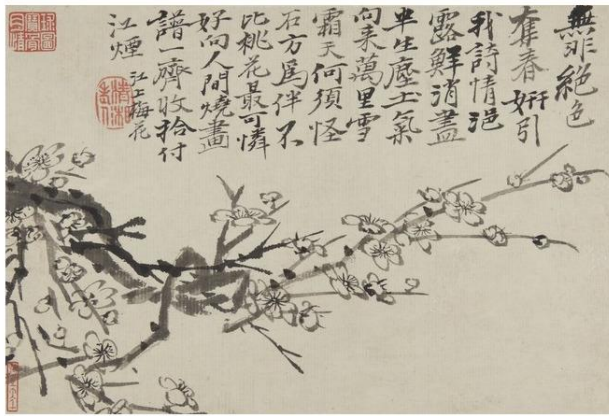 無非絕色
奪春妍引
我詩情浥
露鮮消盡
半生塵土氣
向來萬里雪
霜天何須怪
石方爲伴不
比桃花最可憐
好向人間燒畫
譜一齊收拾付
江煙
江上梅花